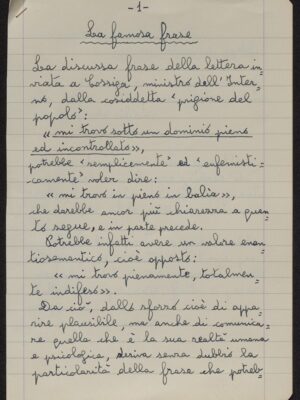 -1-
La famosa frase
La discussa frase della lettera in=
viata a Cossiga, ministro dell'Inter=
no, dalla cosiddetta "prigione del
popolo":
« mi trovo sotto un dominio pieno
ed incontrollato»,
potrebbe "semplicemente" ed "eufemisti=
camente" voler dire:
« mi trovo in pieno in balia»,
che darebbe ancor più chiarezza a quan=
to segue, e in parte precede.
Potrebbe infatti avere un valore enan=
tiosemantico, cioè opposto:
« mi trovo pienamente, totalmen=
te indifeso».
Da ciò, dallo sforzo cioè di appa=
rire plausibile, ma anche di comunica=
re quella che è la sua realtà umana
e psicologica, deriva senza dubbio la
particolarità della frase che potreb=